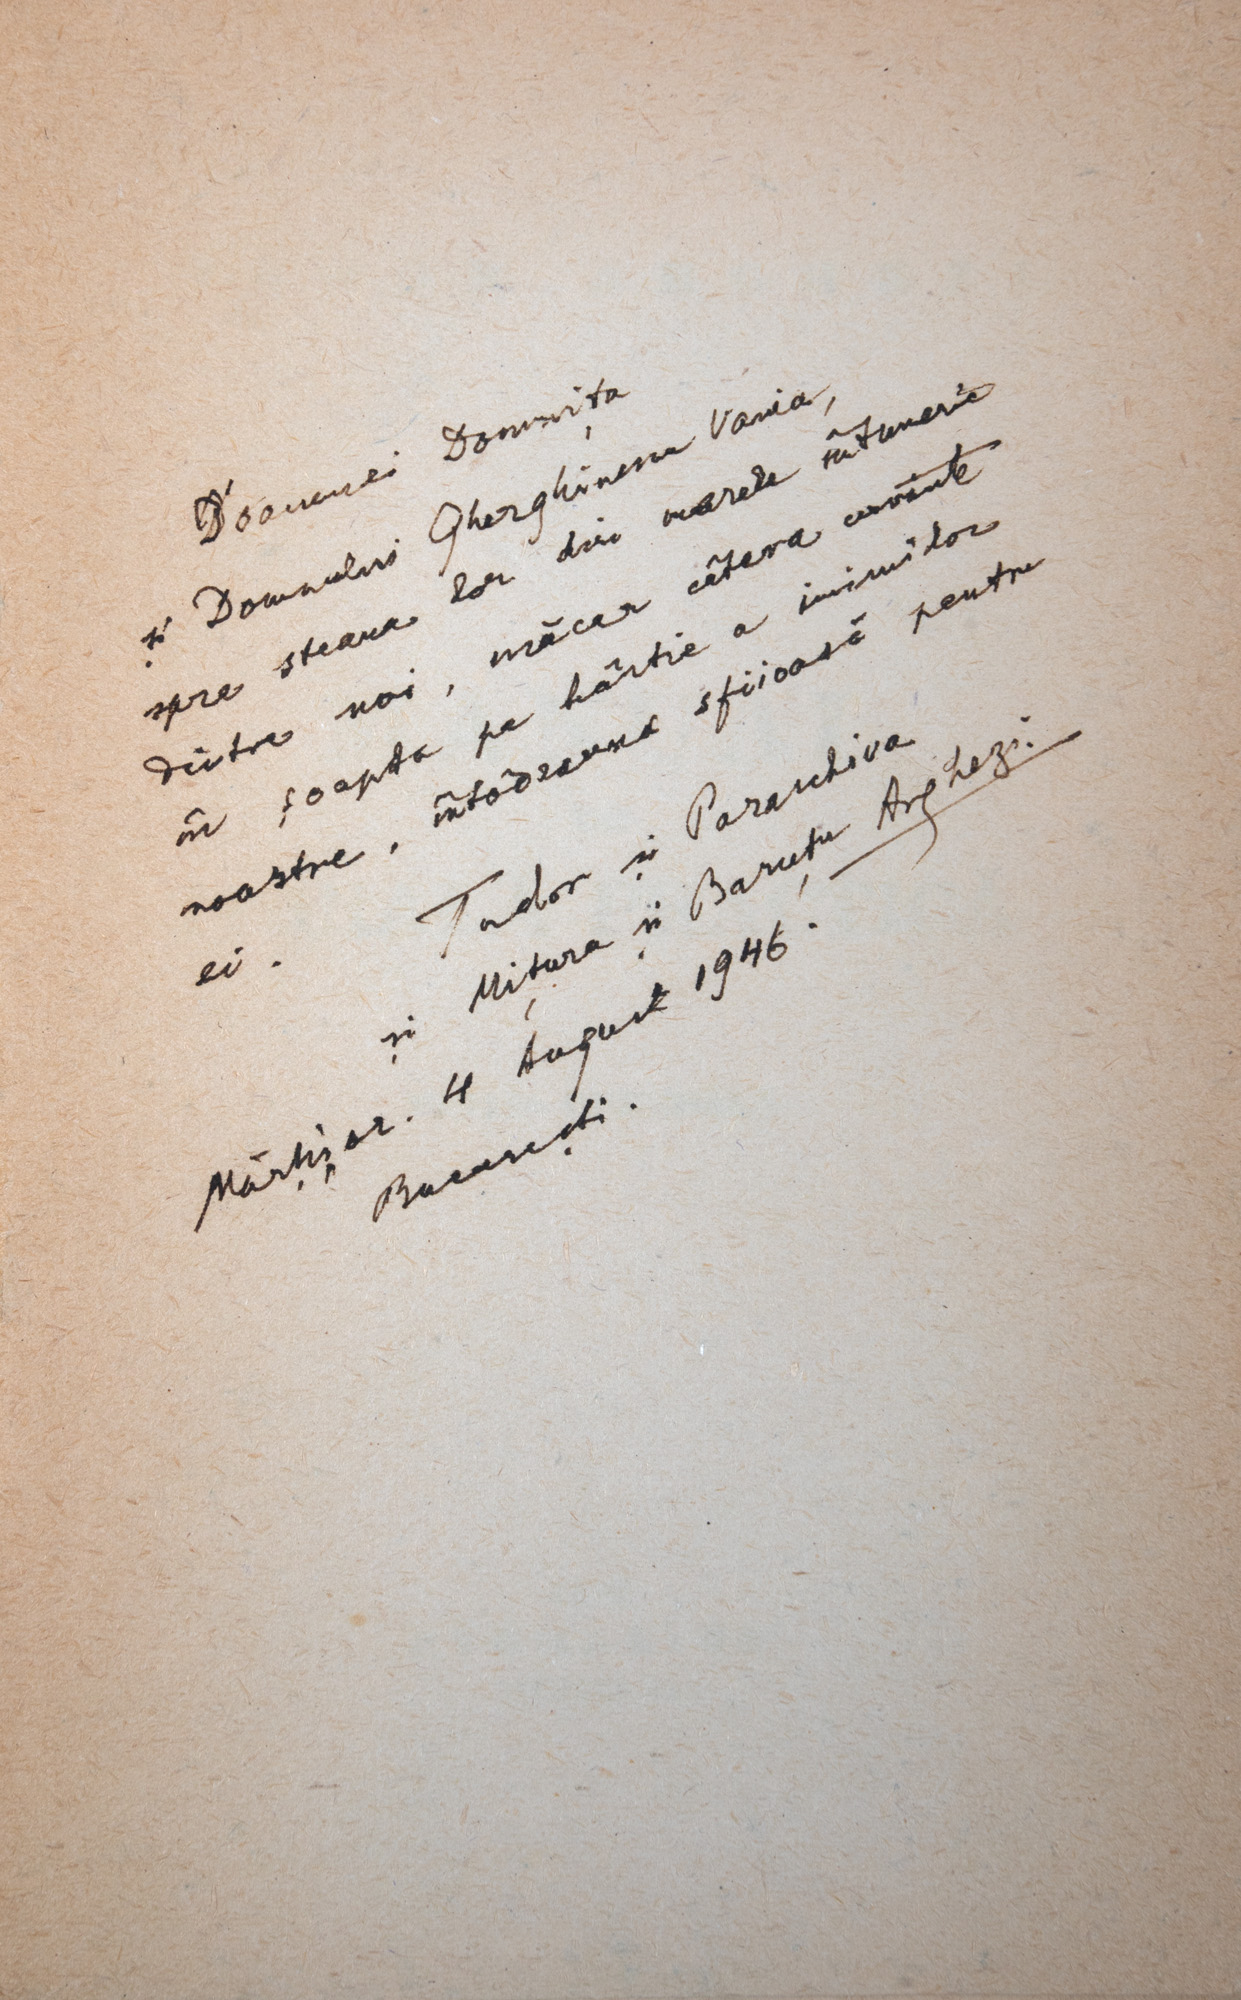 Doamnei Domnița
și Domnului Gherghinescu Vania,
spre steaua lor din marele întuneric
dintre noi, măcar câteva cuvinte
în șoapta pe hârtie a inimilor
noastre, întôdeauna sfiioasă pentru
ei.
Tudor și Paraschiva
și Mițura și Baruțu Arghezi.
Mărțișor. 4 August 1946.
București.